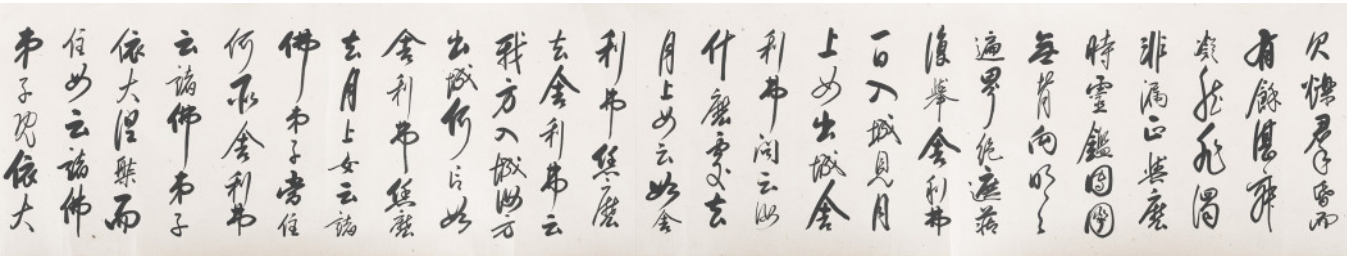 欠爍群昏而
有餘湛寂
凝然非濁
非漏正與麼
時靈鑑圓圓
無背向明明
遍界絕遮藏
復舉舍利弗
一日入城見月
上女出城舍
利弗問云汝
什麼處去
月上女云如舍
利弗恁麼
去舍利弗云
我方入城汝方
出城何言如
舍利弗恁麼
去月上女云諸
佛弟子當住
何所舍利弗
云諸佛弟子
依大涅槃而
住女云諸佛
弟子既依大